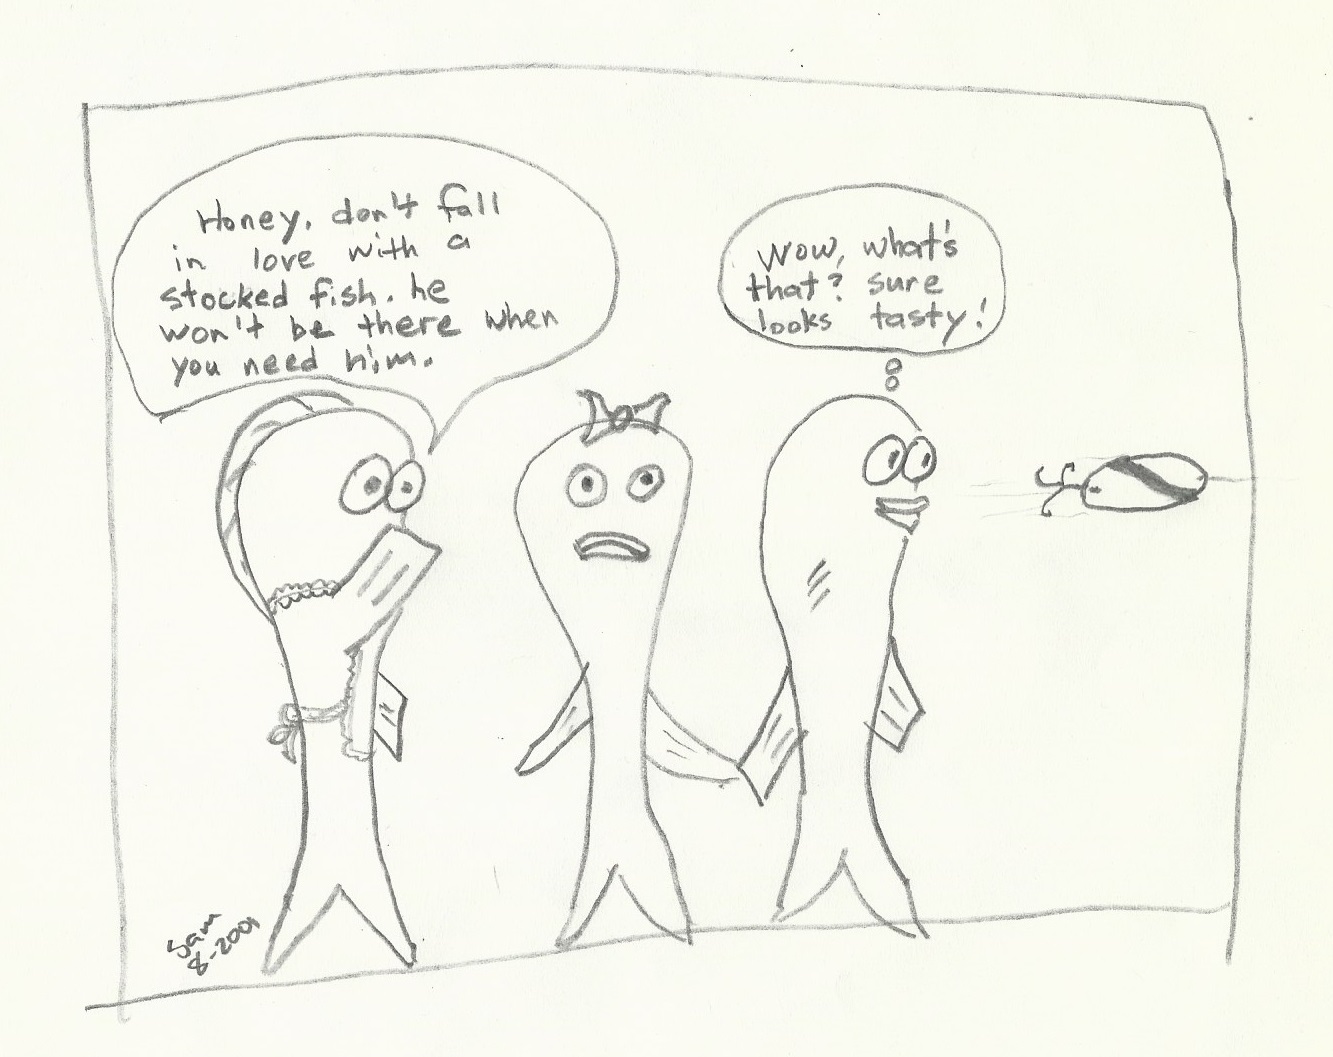 Honey, don't fall
in love with a
stocked fish. he
won't be there when
you need him.
Wow, what's
that? sure
looks tasty!
Sam
8-2001